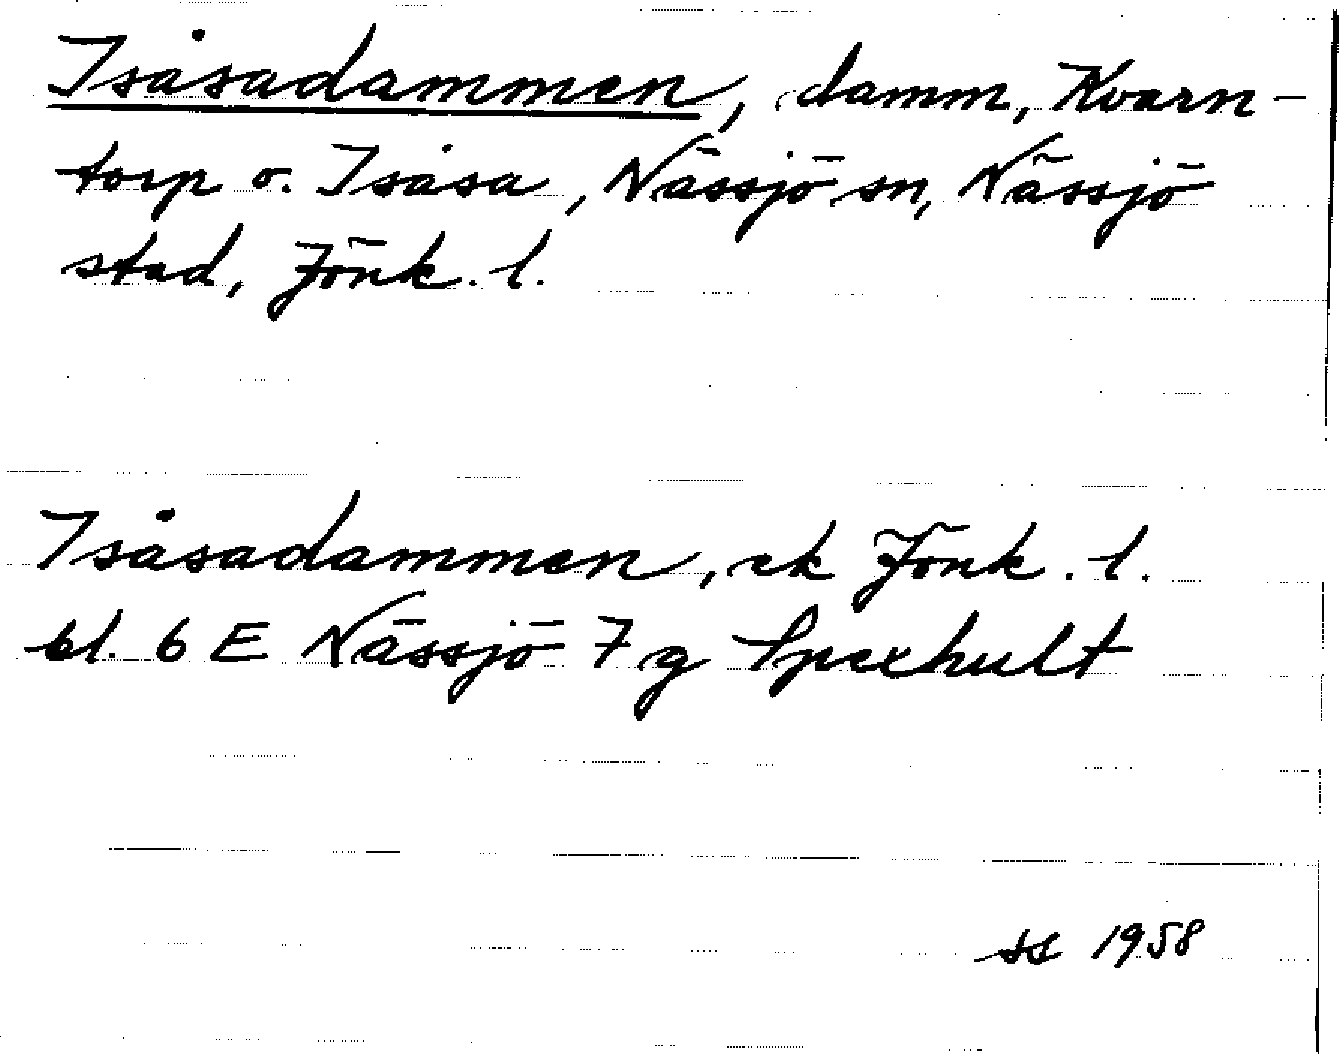 Isåsadammen, damm, Kvarn-
torp o. Isåsa, Nässjö sn, Nässjö
stad, Jönk. l.
Isåsadammen, ek Jönk. l.
bl. 6 E Nässjö 7 g Spexhult
1958